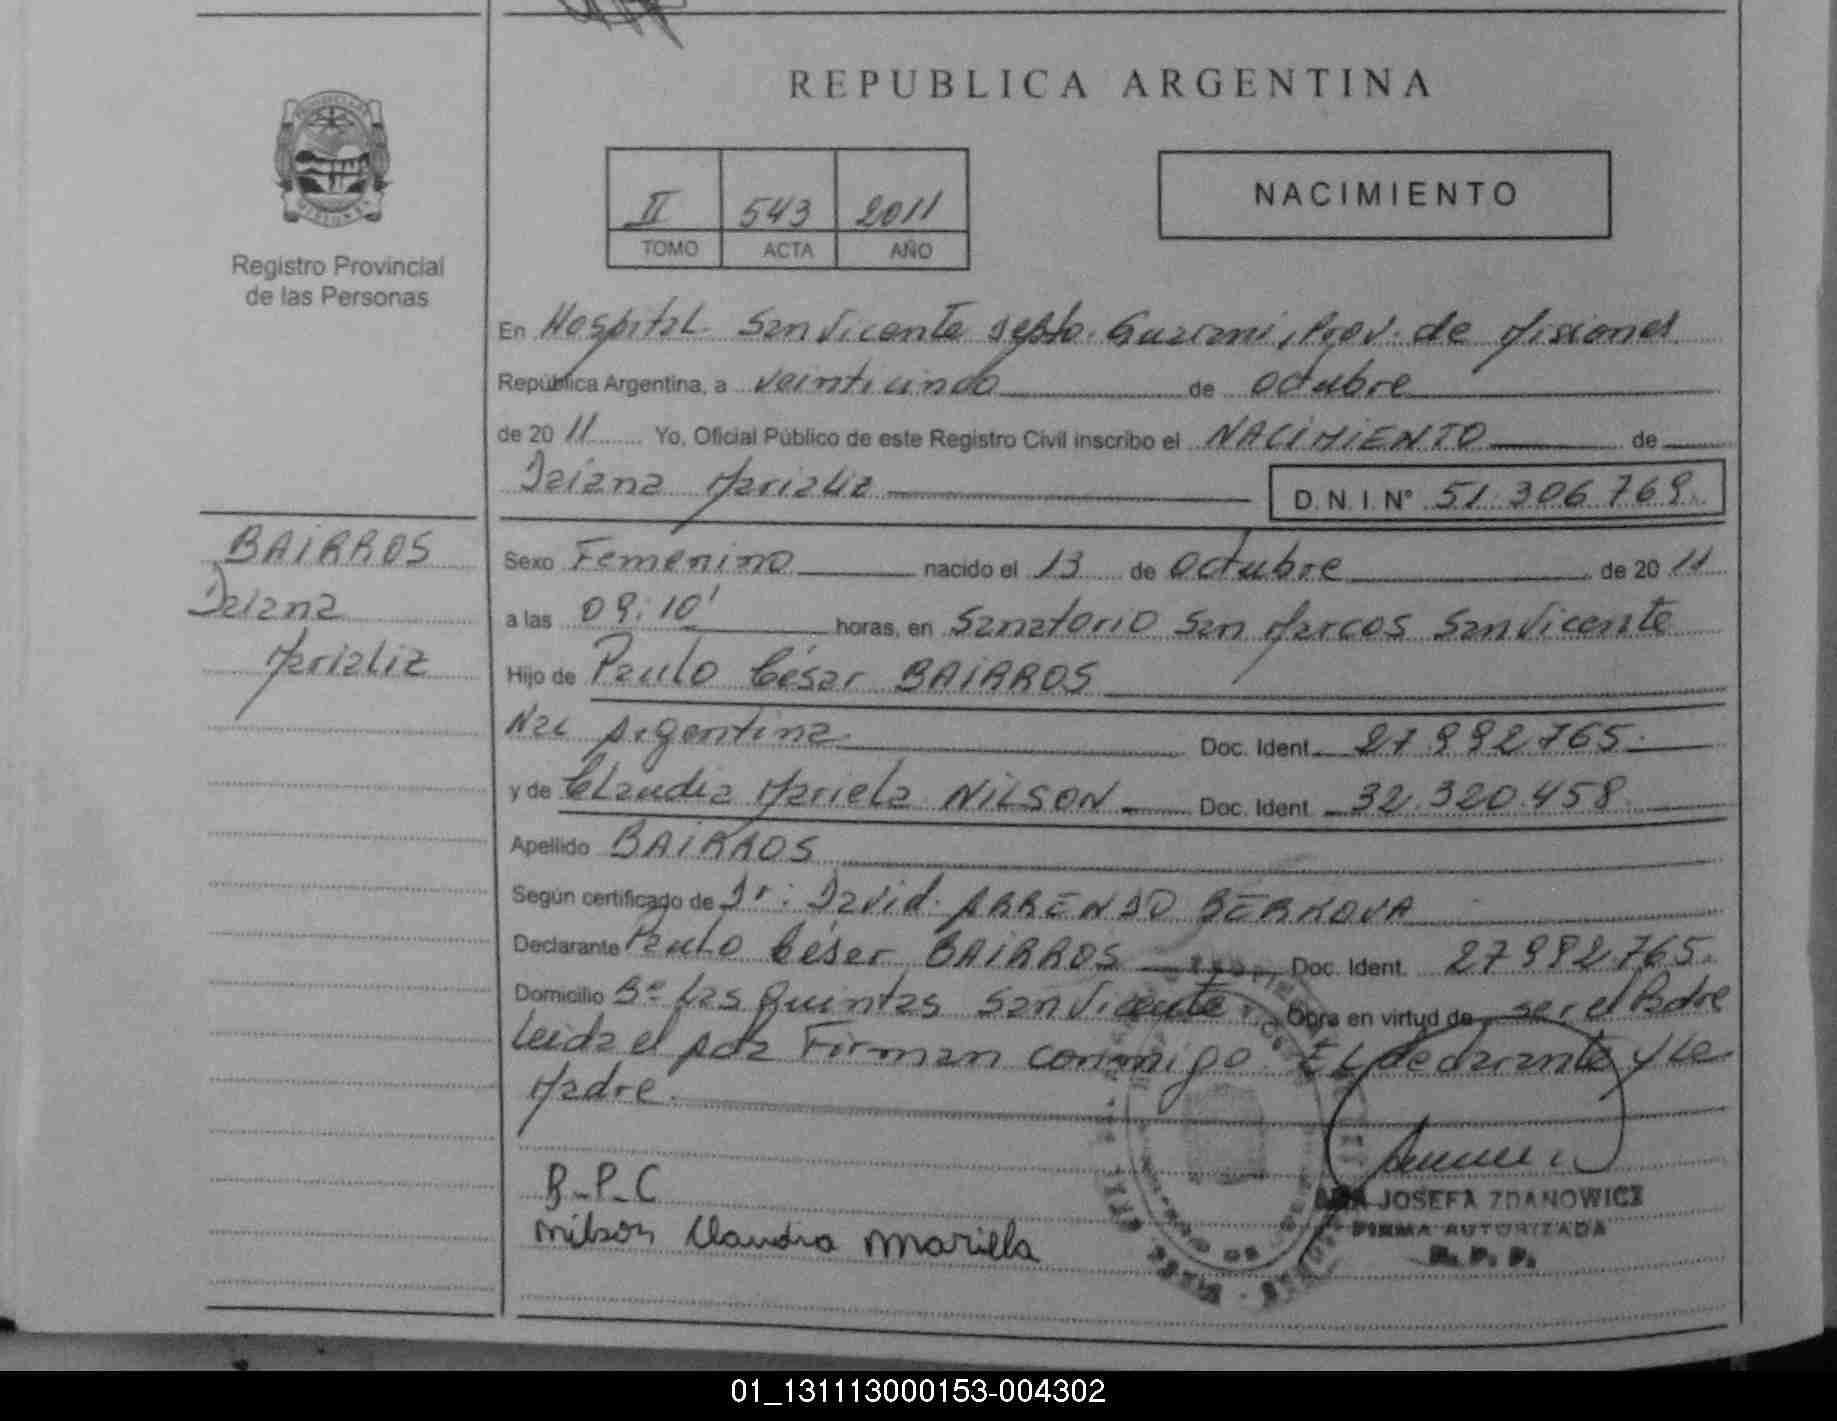 REPUBLICA ARGENTINA
II 543 2011
TOMO ACTA AÑO
NACIMIENTO
Registro Provincial
de las Personas
En Hospital San Vicente Depto. Guarani, Prov. de Misiones
República Argentina, a veinticinco de octubre
de 2011 Yo, Oficial Público de este Registro Civil inscribo el NACIMIENTO de
Daiana Marializ D.N.I. N° 51.306.769
BAIRROS
Daiana
Marializ
Sexo Femenino nacido el 13 de octubre de 2011
a las 09:10' horas, en Sanatorio San Marcos San Vicente
Hijo de Paulo César BAIRROS
Nac Argentina Doc. Ident. 27.992.765.
y de Claudia Mariela NILSON Doc. Ident. 32.320.458
Apellido BAIRROS
Según certificado de Dr: David
Declarante Paulo César BAIRROS Doc. Ident. 27992765.
Domicilio Bº Las Quintas San Vicente Obra en virtud de ser el Padre
Leida el Acta Firman conmigo El declarante y La
Madre.
B-P-C
Nilson Claudia Mariela
JOSEFA ZDANOWICZ
FIRMA AUTORIZADA
R. P. P.
01_131113000153-004302